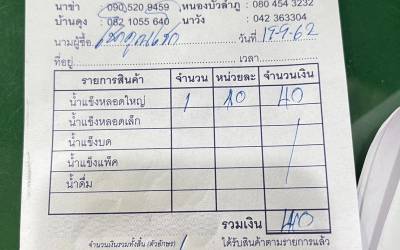 นาข่า 090 520 9459 หนองบัวลำภู : 080 454 3232
บ้านดุง : 082 1055 640 นาวัง : 042 363304
นามผู้ซื้อ วันที่ 19-9-62
ที่อยู่ เวลา
รายการสินค้า จำนวน หน่วยละ จำนวนเงิน
น้ำแข็งหลอดใหญ่ 1 40
น้ำแข็งหลอดเล็ก
น้ำแข็งบด
น้ำแข็งแพ็ค
น้ำดื่ม
รวมเงิน 40
จำนวนเงินรวมทั้งสิ้น (ตัวอักษร) ได้รับสินค้าตามรายการแล้ว